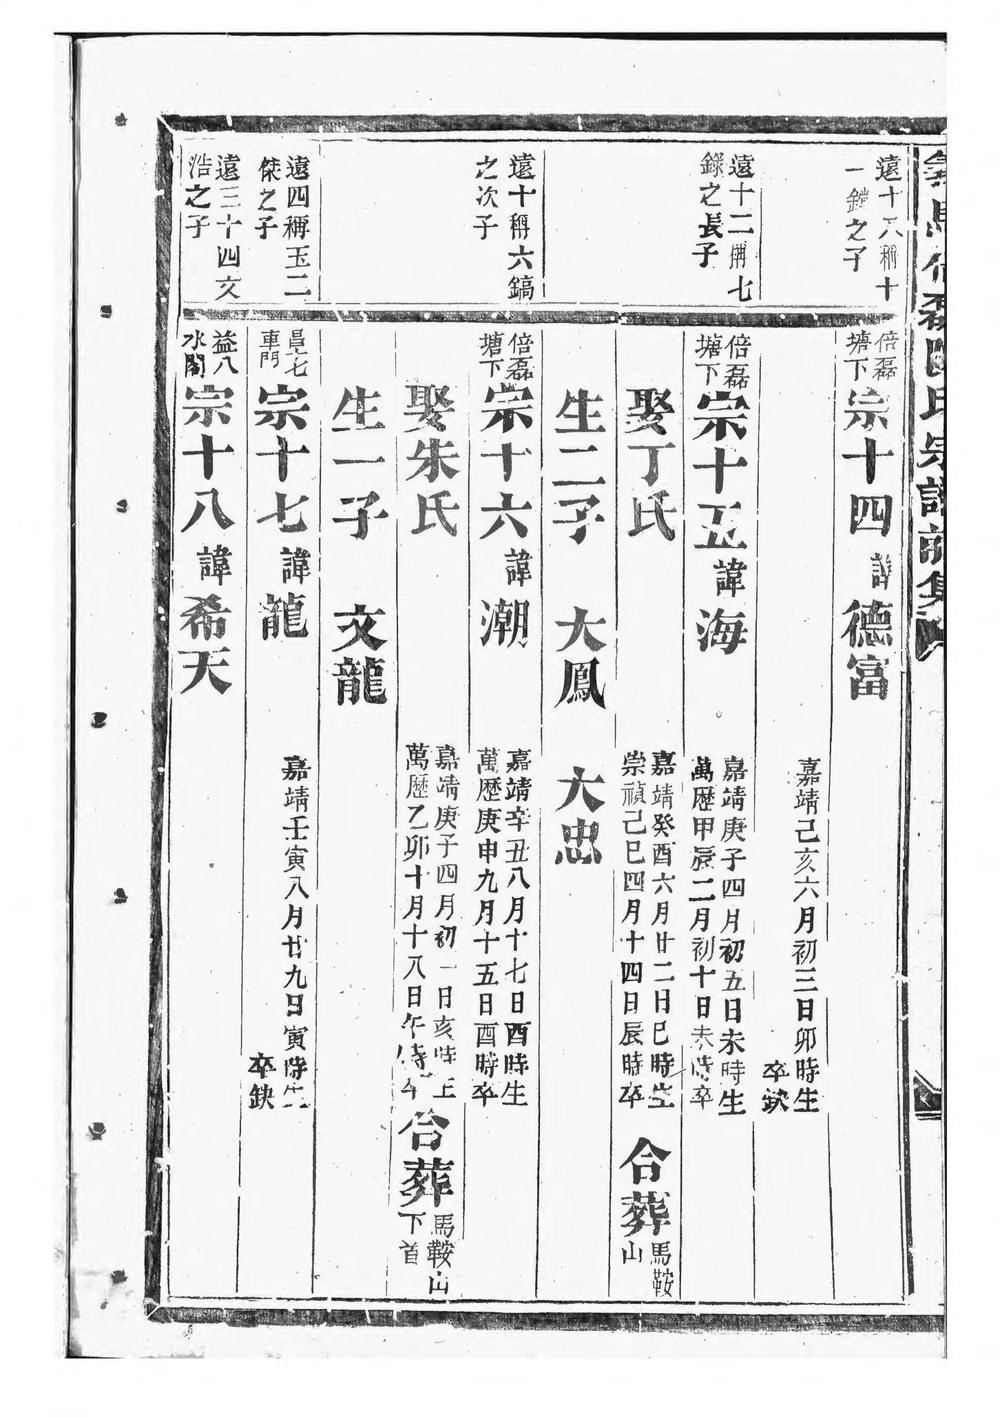 遠十八稱十
一鏜之子
倍磊
塘下
宗十四 諱 德富
嘉靖己亥六月初三日卯時生
卒缺
遠十二稱七
錄之長子
倍磊
塘下
宗十五 諱 海
嘉靖庚子四月初五日未時生
萬歷甲辰二月初十日未時卒
娶丁氏
嘉靖癸酉六月廿二日巳時生
崇禎己巳四月十四日辰時卒
合葬
馬鞍
山
生二子 大鳳 大忠
遠十稱六鎬
之次子
倍磊
塘下
宗十六 諱 潮
嘉靖辛丑八月十七日酉時生
萬歷庚申九月十五日酉時卒
娶朱氏
嘉靖庚子四月初一日亥時生
萬歷乙卯十月十八日午時卒
合葬
馬鞍山
下首
生一子 文龍
遠四稱玉二
傑之子
昌七
車門
宗十七 諱 龍
嘉靖壬寅八月廿九日寅時生
卒缺
遠三十四文
浩之子
益八
水閣
宗十八 諱 希天